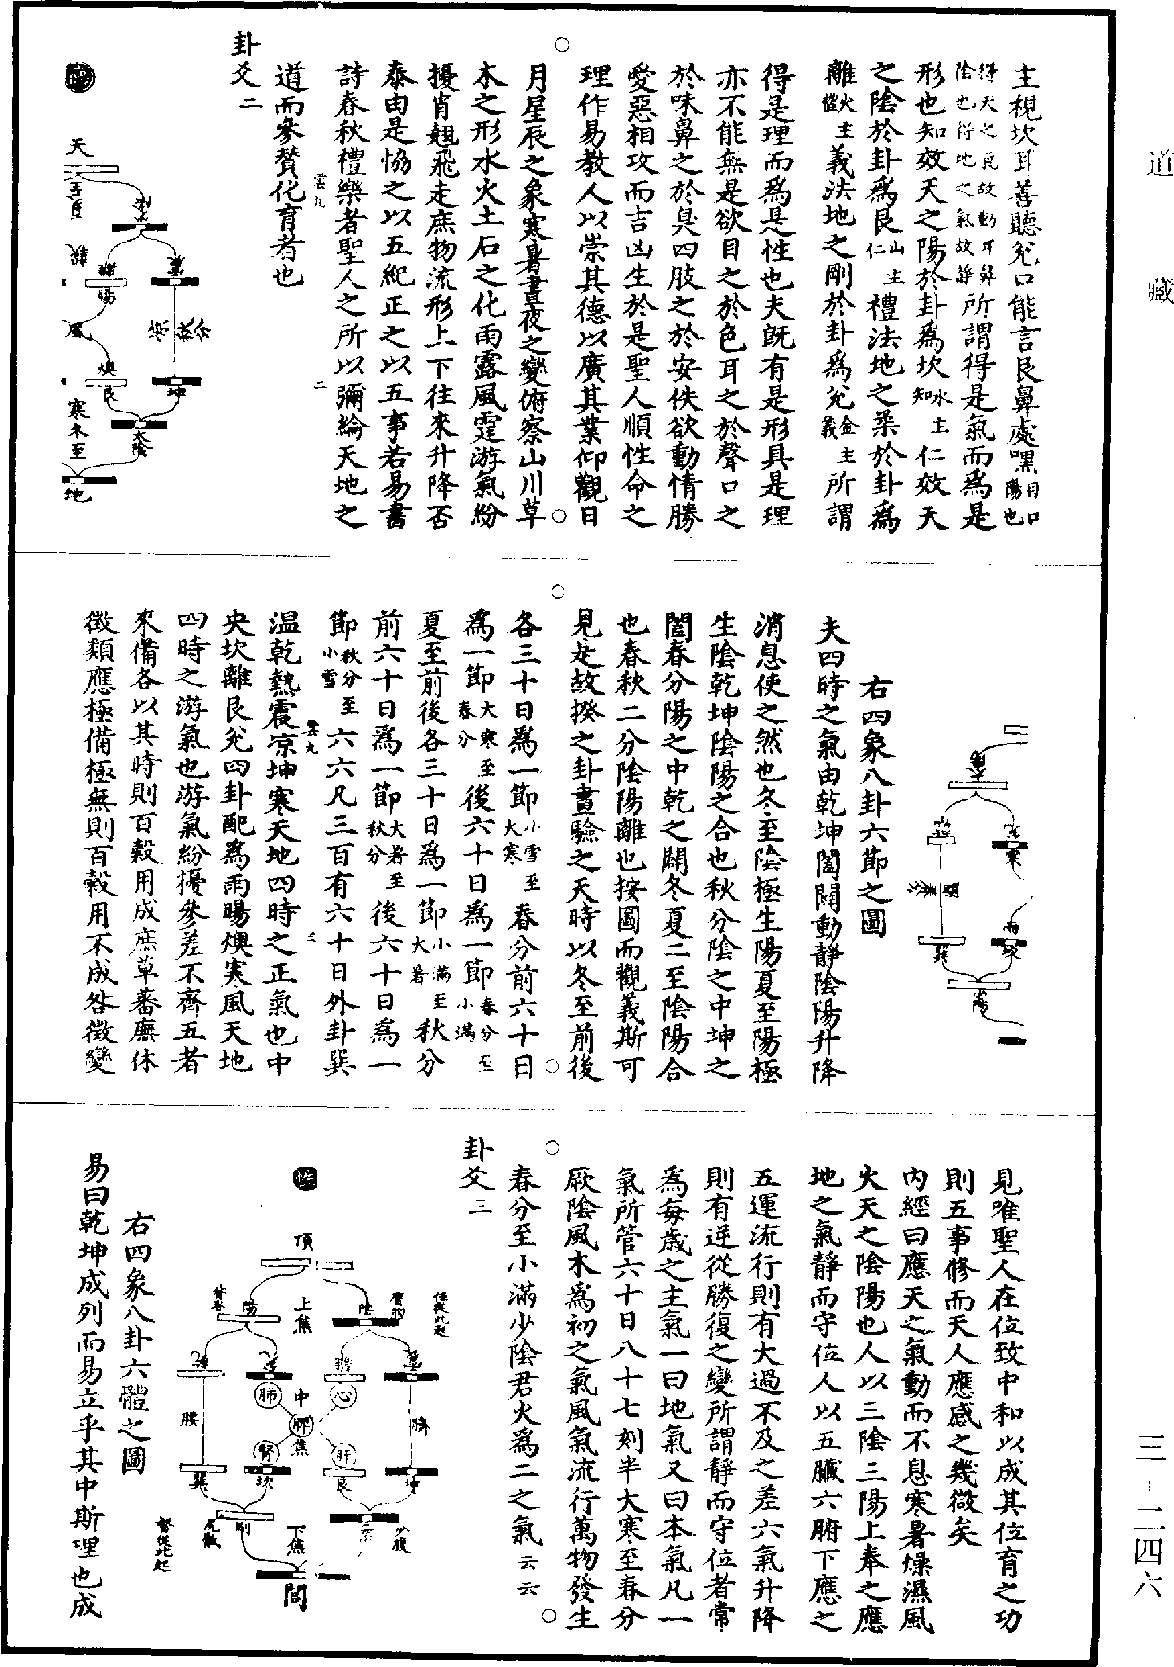 道藏
三—二四六
主視坎耳善聽兌口能言艮鼻處嘿目口陽也
得天之良故動耳鼻陰也得地之氣故靜所謂得是氣而爲是
形也知效天之陽於卦爲坎水主知仁效天
之陰於卦爲艮山主仁禮法地之柔於卦爲
離火主禮義法地之剛於卦爲兌金主義所謂
得是理而爲是性也夫旣有是形具是理
亦不能無是欲目之於色耳之於聲口之
於味鼻之於臭四肢之於安佚欲動情勝
愛惡相攻而吉凶生於是聖人順性命之
理作易教人以崇其德以廣其業仰觀日
月星辰之象寒暑晝夜之變俯察山川草
木之形水火土石之化雨露風霆游氣紛
擾肖翹飛走庶物流形上下往來升降否
泰由是恊之以五紀正之以五事若易書
詩春秋禮樂者聖人之所以彌綸天地之
道而參贊化育者也
雲九
二
卦爻二
天
地
太陰
坤
艮
燠
暘
風
寒冬至
右四象八卦六節之圖
夫四時之氣由乾坤闔闢動靜陰陽升降
消息使之然也冬至陰極生陽夏至陽極
生陰乾坤陰陽之合也秋分陰之中坤之
闔春分陽之中乾之闢冬夏二至陰陽合
也春秋二分陰陽離也按圖而觀義斯可
見是故揆之卦畫驗之天時以冬至前後
各三十日爲一節小雪至大寒春分前六十日
爲一節大寒至春分後六十日爲一節春分至小滿
夏至前後各三十日爲一節小滿至大暑秋分
前六十日爲一節大暑至秋分後六十日爲一
節秋分至小雪六六凡三百有六十日外卦巽
雲九
三
温乾熱震凉坤寒天地四時之正氣也中
央坎離艮兌四卦配爲雨暘燠寒風天地
四時之游氣也游氣紛擾參差不齊五者
來備各以其時則百穀用成庶草蕃廡休
徵類應極備極無則百穀用不成咎徵變
見唯聖人在位致中和以成其位育之功
則五事修而天人應感之幾微矣
内經曰應天之氣動而不息寒暑燥濕風
火天之陰陽也人以三陰三陽上奉之應
地之氣靜而守位人以五臟六腑下應之
五運流行則有大過不及之差六氣升降
則有逆從勝復之變所謂靜而守位者常
爲每歲之主氣一曰地氣又曰本氣凡一
氣所管六十日八十七刻半大寒至春分
厥陰風木爲初之氣風氣流行萬物發生
春分至小滿少陰君火爲二之氣云云
卦爻三
頂
上焦
陽
陰
肺
心
中焦
脾
腎
肝
腰
臍
巽
坎
艮
坤
下焦
尾閭
少腹
督從此起
任從此起
右四象八卦六體之圖
易曰乾坤成列而易立乎其中斯理也成